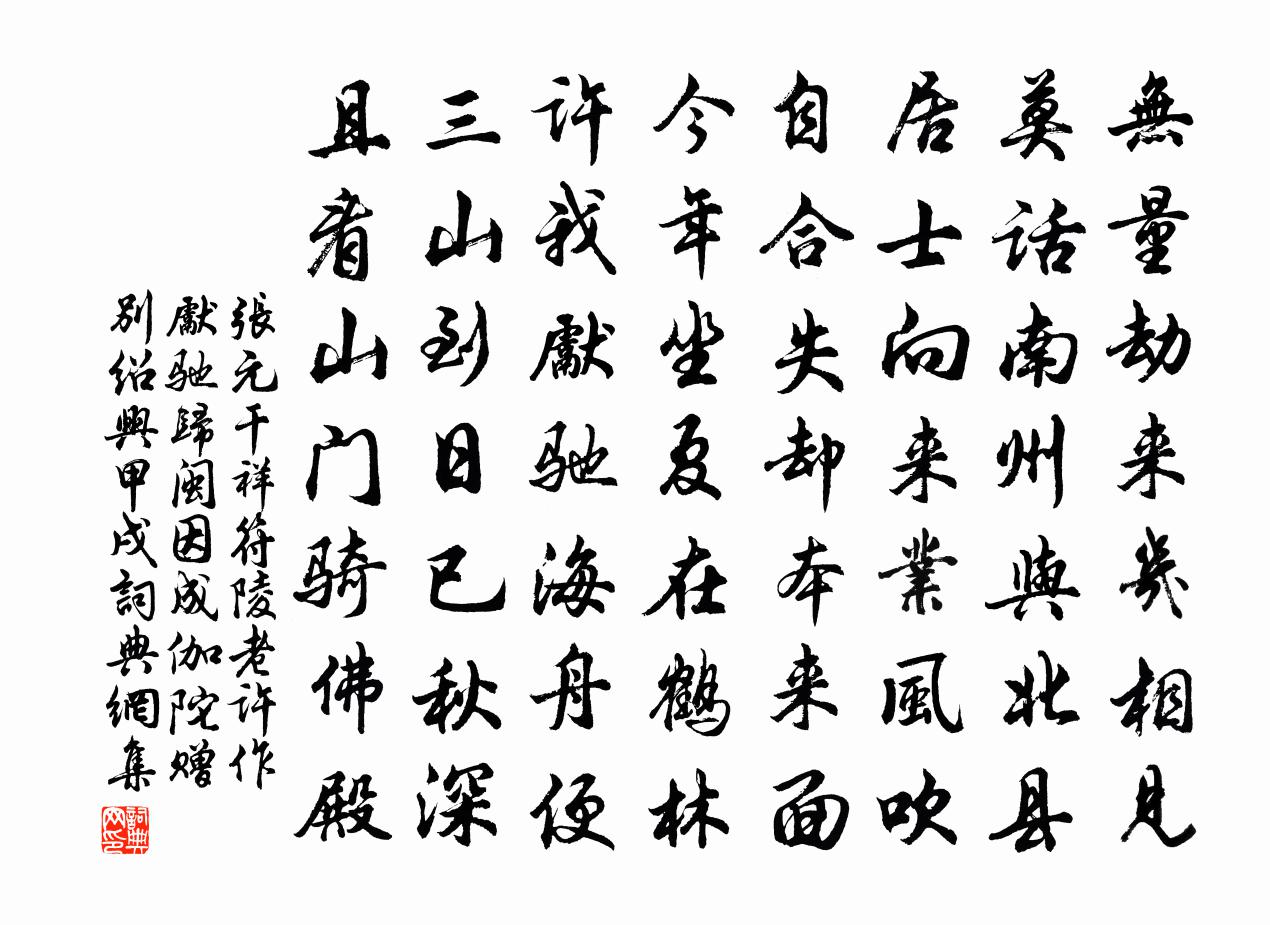 無量劫来幾相見
莫話南州與北县
居士向来業風吹
自合失却本来面
今年坐夏在鶴林
許我獻馳海舟便
三山到日已秋深
且看山门骑佛殿
張元干祥符陵老许作
獻馳歸闽因成伽陀赠
别紹興甲戌詞典網集
詞典网印